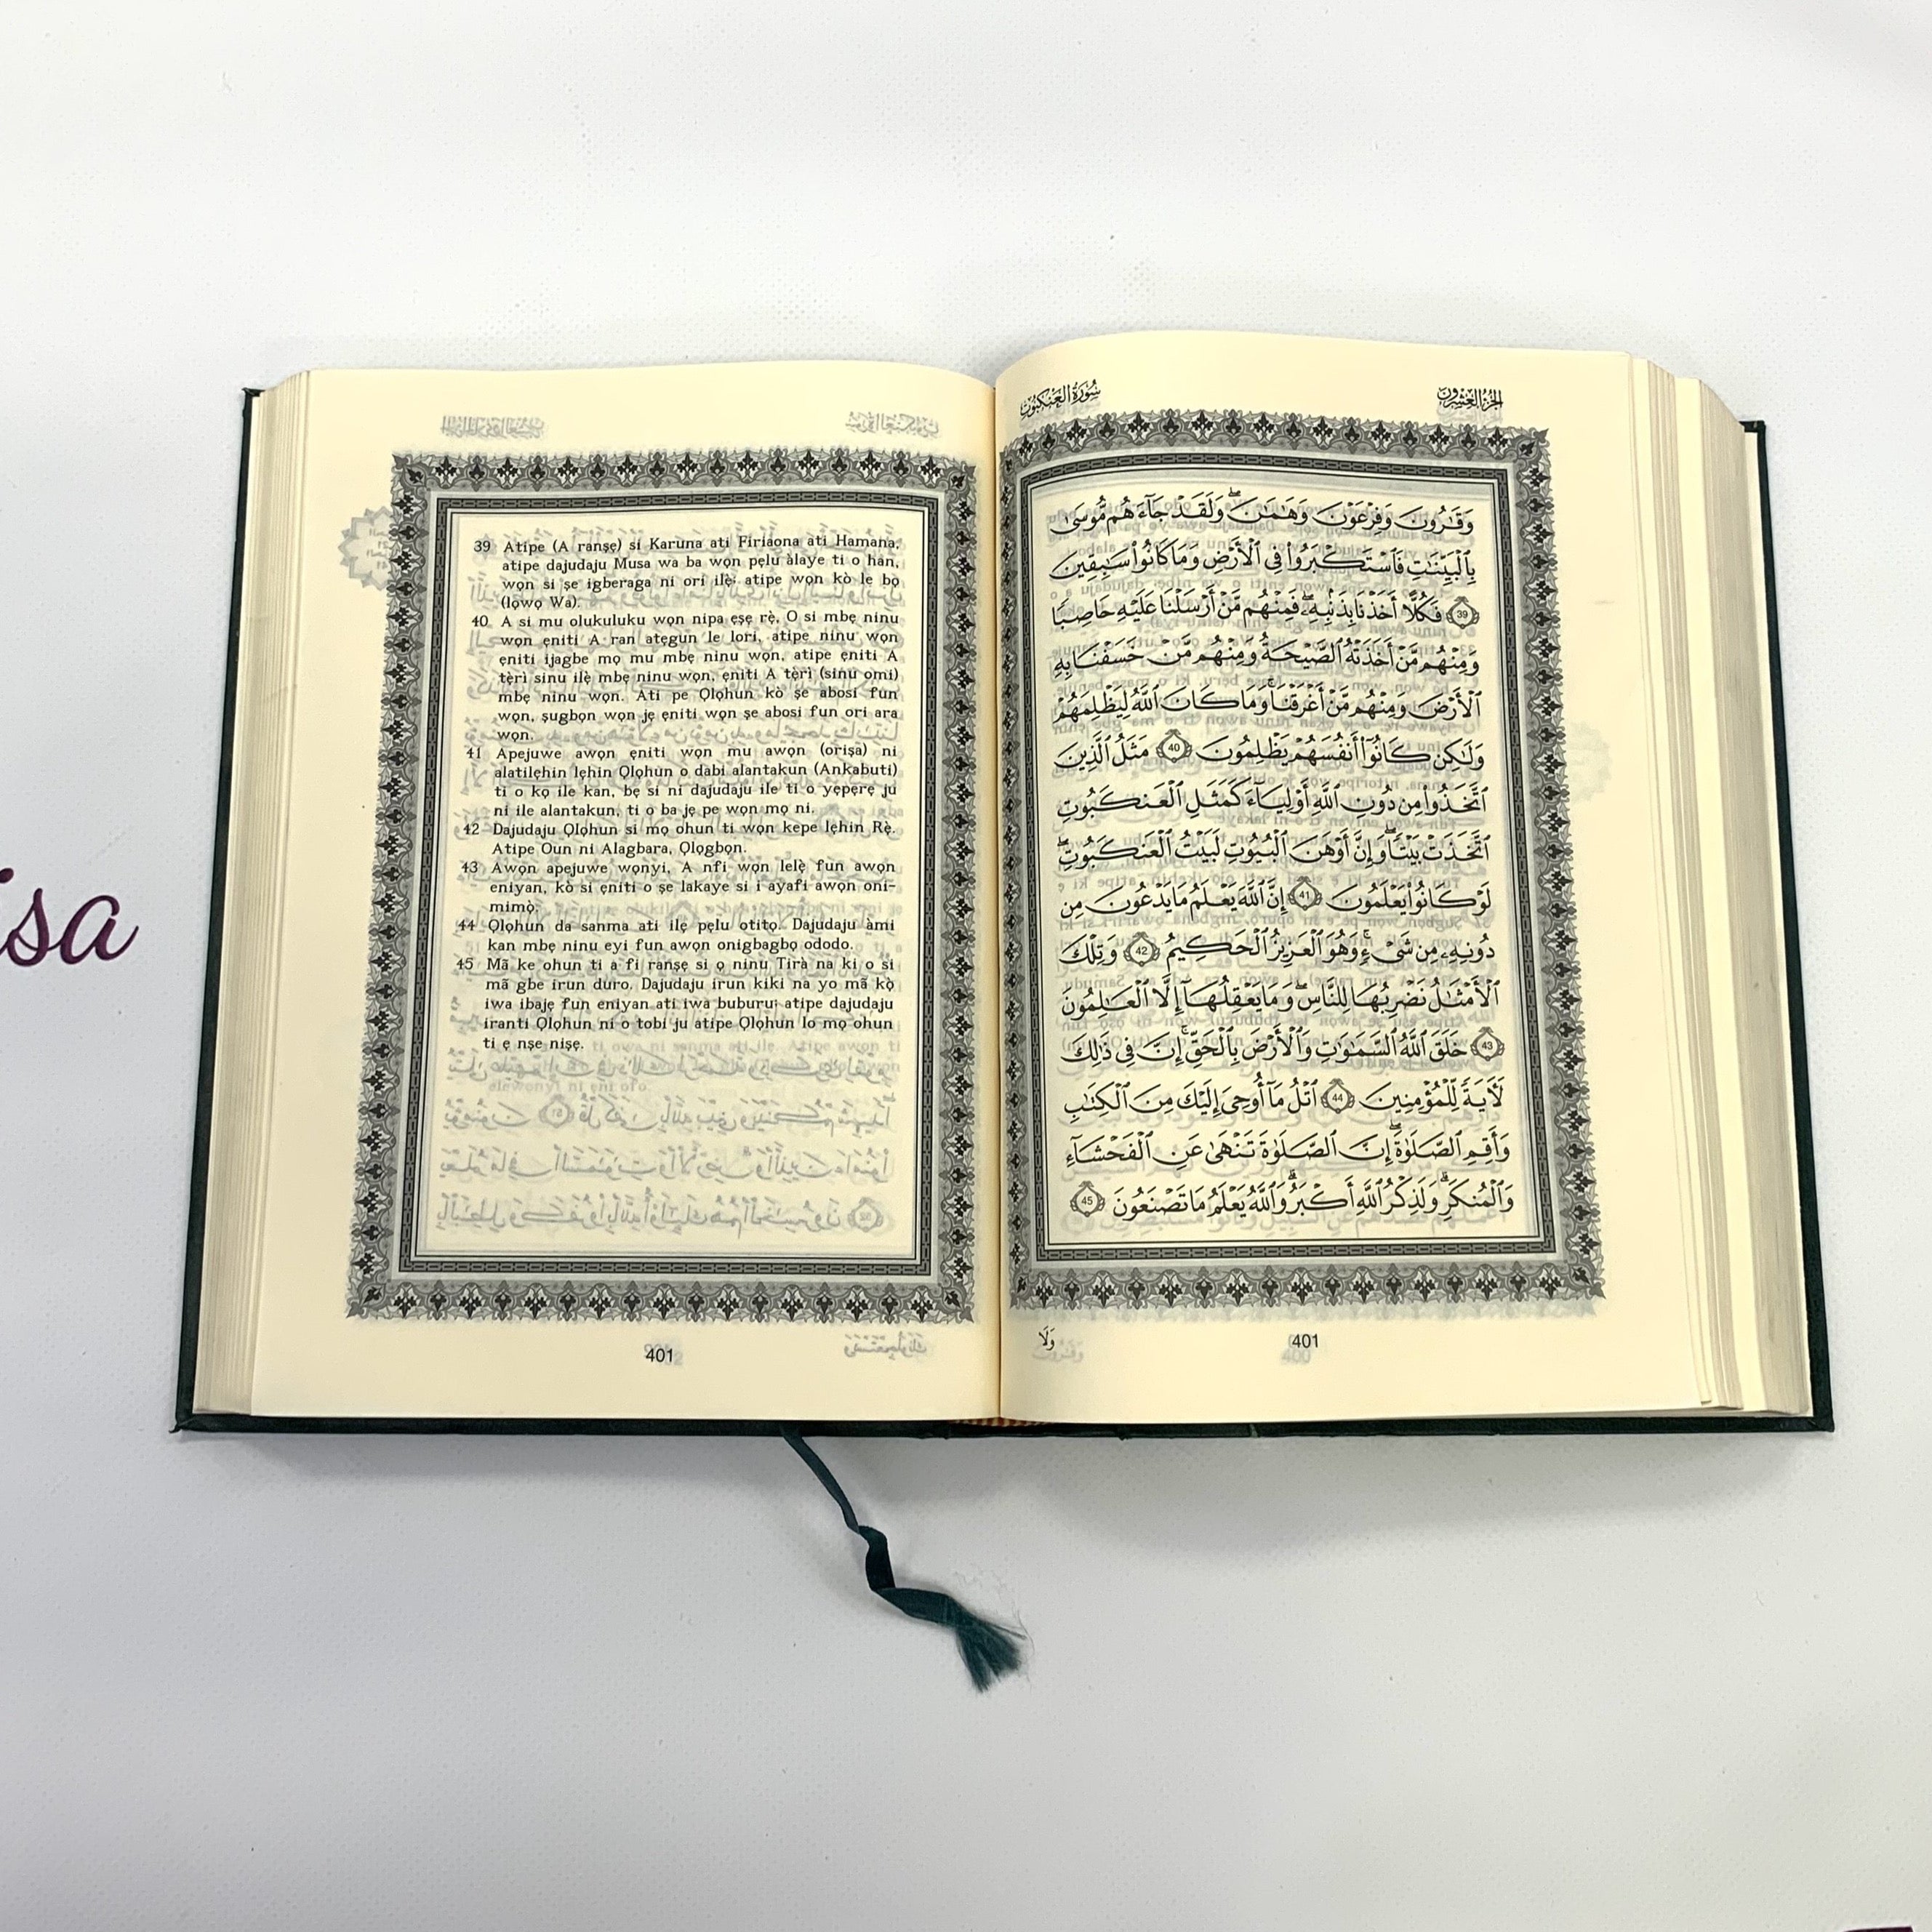 isa
39 Atipe (A ranṣẹ) si Karuna ati Firiaona ati Hamana,
atipe dajudaju Musa wa ba wọn pẹlu àlaye ti o han,
wọn si ṣe igberaga ni ori ilẹ; atipe wọn kò le bọ
(lọwọ Wa).
40 A si mu olukuluku wọn nipa ẹṣẹ rẹ̀, O si mbẹ ninu
wọn ẹniti A ran atẹgun le lori, atipe ninu wọn
ẹniti ijagbe mọ mu mbẹ ninu wọn, atipe ẹniti A
tẹ̀rì sinu ilẹ̀ mbẹ ninu wọn, ẹniti A tẹ̀rì (sinu omi)
mbẹ ninu wọn. Ati pe Ọlọhun kò ṣe abosi fun
wọn, ṣugbọn wọn jẹ ẹniti wọn ṣe abosi fun ori ara
wọn.
41 Apejuwe awọn ẹniti wọn mu awọn (oriṣa) ni
alatilẹhin lẹhin Ọlọhun o dabi alantakun (Ankabuti)
ti o kọ ile kan, bẹ si ni dajudaju ile ti o yẹpẹrẹ ju
ni ile alantakun, ti o ba jẹ pe wọn mọ ni.
42 Dajudaju Ọlọhun si mọ ohun ti wọn kepe lẹhin Rẹ̀.
Atipe Oun ni Alagbara, Ọlọgbọn.
43 Awọn apejuwe wọnyi, A nfi wọn lelẹ̀ fun awọn
eniyan, kò si ẹniti o ṣe lakaye si i ayafi awọn oni-
mimọ̀.
44 Ọlọhun da sanma ati ilẹ pẹlu otitọ. Dajudaju àmi
kan mbẹ ninu eyi fun awọn onigbagbọ ododo.
45 Mã ke ohun ti a fi ranṣẹ si ọ ninu Tirà na ki o si
mã gbe irun duro, Dajudaju irun kiki na yo mã kọ̀
iwa ibajẹ fun eniyan ati iwa buburu; atipe dajudaju
iranti Ọlọhun ni o tobi ju atipe Ọlọhun lo mọ ohun
ti ẹ nṣe niṣẹ.
401
الجزء العشرون
سورة العنكبوت
وَقَٰرُونَ وَفِرْعَوْنَ وَهَٰمَٰنَ ۖ وَلَقَدْ جَآءَهُم مُّوسَىٰ
بِٱلْبَيِّنَٰتِ فَٱسْتَكْبَرُوا۟ فِى ٱلْأَرْضِ وَمَا كَانُوا۟ سَٰبِقِينَ
39 فَكُلًّا أَخَذْنَا بِذَنۢبِهِۦ ۖ فَمِنْهُم مَّنْ أَرْسَلْنَا عَلَيْهِ حَاصِبًا
وَمِنْهُم مَّنْ أَخَذَتْهُ ٱلصَّيْحَةُ وَمِنْهُم مَّنْ خَسَفْنَا بِهِ
ٱلْأَرْضَ وَمِنْهُم مَّنْ أَغْرَقْنَا ۚ وَمَا كَانَ ٱللَّهُ لِيَظْلِمَهُمْ
وَلَٰكِن كَانُوٓا۟ أَنفُسَهُمْ يَظْلِمُونَ 40 مَثَلُ ٱلَّذِينَ
ٱتَّخَذُوا۟ مِن دُونِ ٱللَّهِ أَوْلِيَآءَ كَمَثَلِ ٱلْعَنكَبُوتِ
ٱتَّخَذَتْ بَيْتًا ۖ وَإِنَّ أَوْهَنَ ٱلْبُيُوتِ لَبَيْتُ ٱلْعَنكَبُوتِ ۖ
لَوْ كَانُوا۟ يَعْلَمُونَ 41 إِنَّ ٱللَّهَ يَعْلَمُ مَا يَدْعُونَ مِن
دُونِهِۦ مِن شَىْءٍ ۚ وَهُوَ ٱلْعَزِيزُ ٱلْحَكِيمُ 42 وَتِلْكَ
ٱلْأَمْثَٰلُ نَضْرِبُهَا لِلنَّاسِ ۖ وَمَا يَعْقِلُهَآ إِلَّا ٱلْعَٰلِمُونَ
43 خَلَقَ ٱللَّهُ ٱلسَّمَٰوَٰتِ وَٱلْأَرْضَ بِٱلْحَقِّ ۚ إِنَّ فِى ذَٰلِكَ
لَءَايَةً لِّلْمُؤْمِنِينَ 44 ٱتْلُ مَآ أُوحِىَ إِلَيْكَ مِنَ ٱلْكِتَٰبِ
وَأَقِمِ ٱلصَّلَوٰةَ ۖ إِنَّ ٱلصَّلَوٰةَ تَنْهَىٰ عَنِ ٱلْفَحْشَآءِ
وَٱلْمُنكَرِ ۗ وَلَذِكْرُ ٱللَّهِ أَكْبَرُ ۗ وَٱللَّهُ يَعْلَمُ مَا تَصْنَعُونَ 45
وَلَا
401